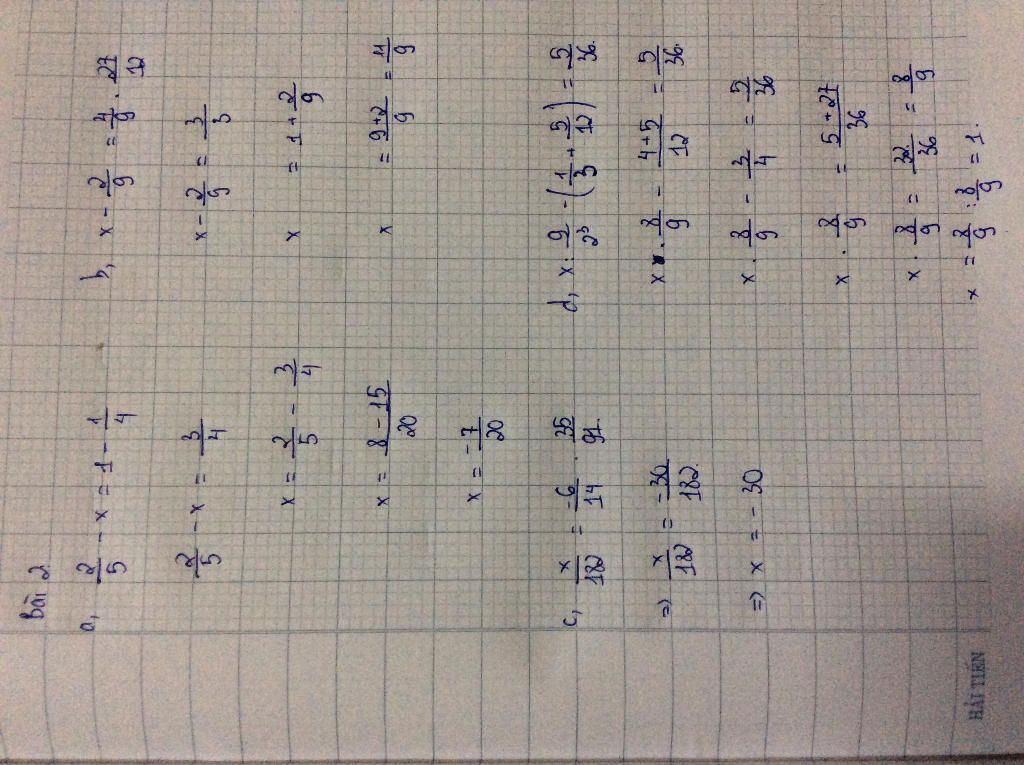 Bài 2
a, 2/5 - x = 1 - 1/4
2/5 - x = 3/4
x = 2/5 - 3/4
x = 8 - 15/20
x = -7/20
b, x - 2/9 = 4/9 . 27/12
x - 2/9 = 3/3
x = 1 + 2/9
x = 9+2/9 = 11/9
c, x/182 = -6/14 . 35/91
=> x/182 = -30/182
=> x = - 30
d, x : 9/2³ - (1/3 + 5/12) = 5/36
x . 8/9 - 4+5/12 = 5/36
x . 8/9 - 3/4 = 5/36
x . 8/9 = 5+27/36
x . 8/9 = 32/36 = 8/9
x = 8/9 : 8/9 = 1.
HẢI TIẾN